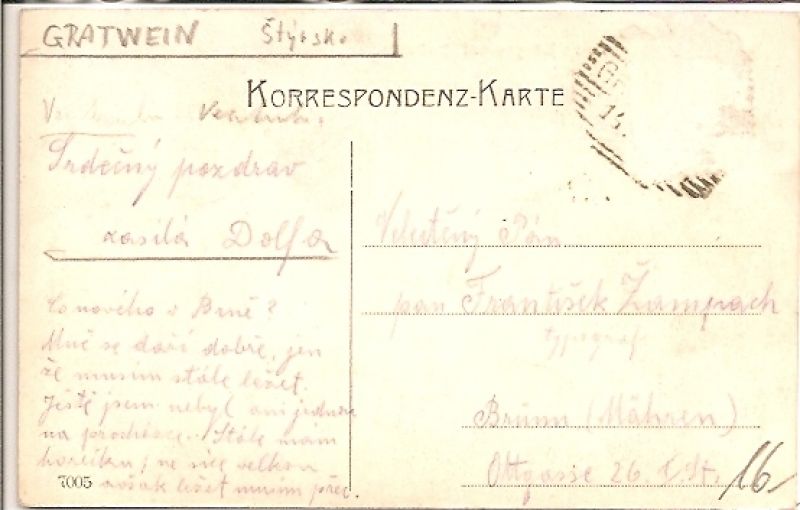 GRATWEIN Štýrsko
KORRESPONDENZ-KARTE
Srdečný pozdrav
zasílá Dolfa
Co nového v Brně?
Mně se daří dobře, jen
že musím stále ležet.
Ještě jsem nebyl ani jednou
na procházce. Stále mám
horečku, ne sice velkou
avšak ležet musím přec.
7005
Velectěný Pán
pan František Žampach
typograf
Brünn (Mähren)
Ottgasse 26. I. St.
16